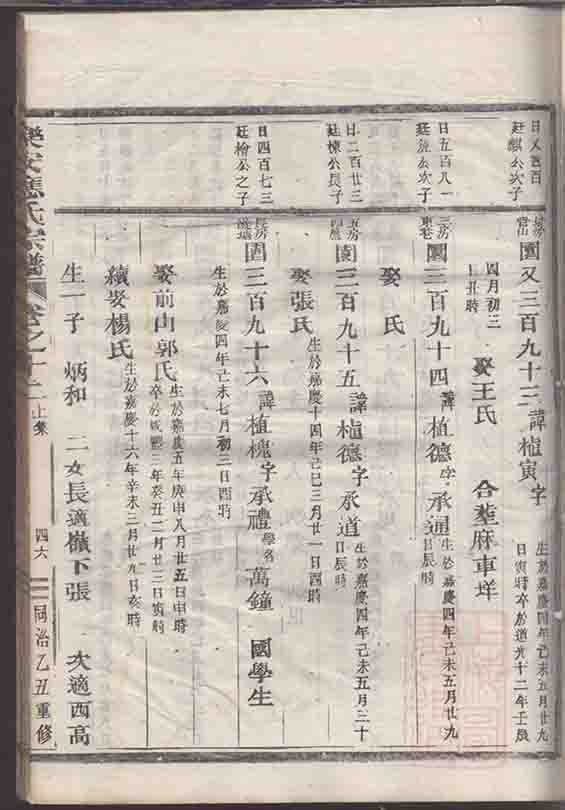 廷麒公次子
園又三百九十三 諱植寅 字
生於嘉慶四年己未五月廿九
日寅時卒於道光十二年壬辰
四月初三
丑時
娶王氏 合塟麻車垟
日五百八一
廷旄公次子
三房
東巷
園三百九十四 諱植德 字承通
生於嘉慶四年己未五月廿九
日辰時
娶 氏
日二百廿三
廷棟公長子
園三百九十五 諱植德 字承道
生於嘉慶四年己未五月三十
日辰時
娶張氏
生於嘉慶十四年己巳三月廿一日酉時
日四百七三
廷檜公之子
長房
園三百九十六 諱植槐 字承禮 學名萬鐘 國學生
生於嘉慶四年己未七月初三日酉時
娶前山郭氏
生於嘉慶五年庚申八月廿五日申時
卒於咸豐三年癸丑二月廿三日寅時
續娶楊氏
生於嘉慶十六年辛未三月廿九日亥時
生一子 炳和 二女長適嶺下張 次適西高
樂安應氏宗譜 卷之十二 上集 四六 同治乙丑重修